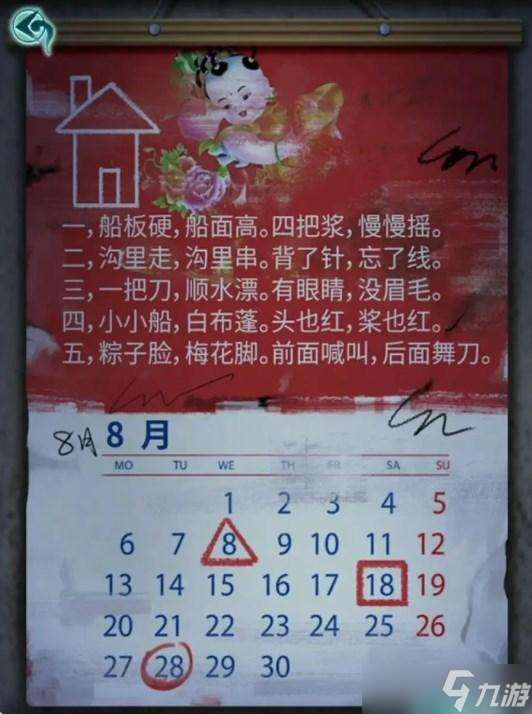 一，船板硬，船面高。四把浆，慢慢摇。
二，沟里走，沟里串。背了针，忘了线。
三，一把刀，顺水漂。有眼睛，没眉毛。
四，小小船，白布蓬。头也红，桨也红。
五，粽子脸，梅花脚。前面喊叫，后面舞刀。
8月 8 月
MO TU WE TH FR SA SU
1 2 3 4 5
6 7 8 9 10 11 12
13 14 15 16 17 18 19
20 21 22 23 24 25 26
27 28 29 30
九游